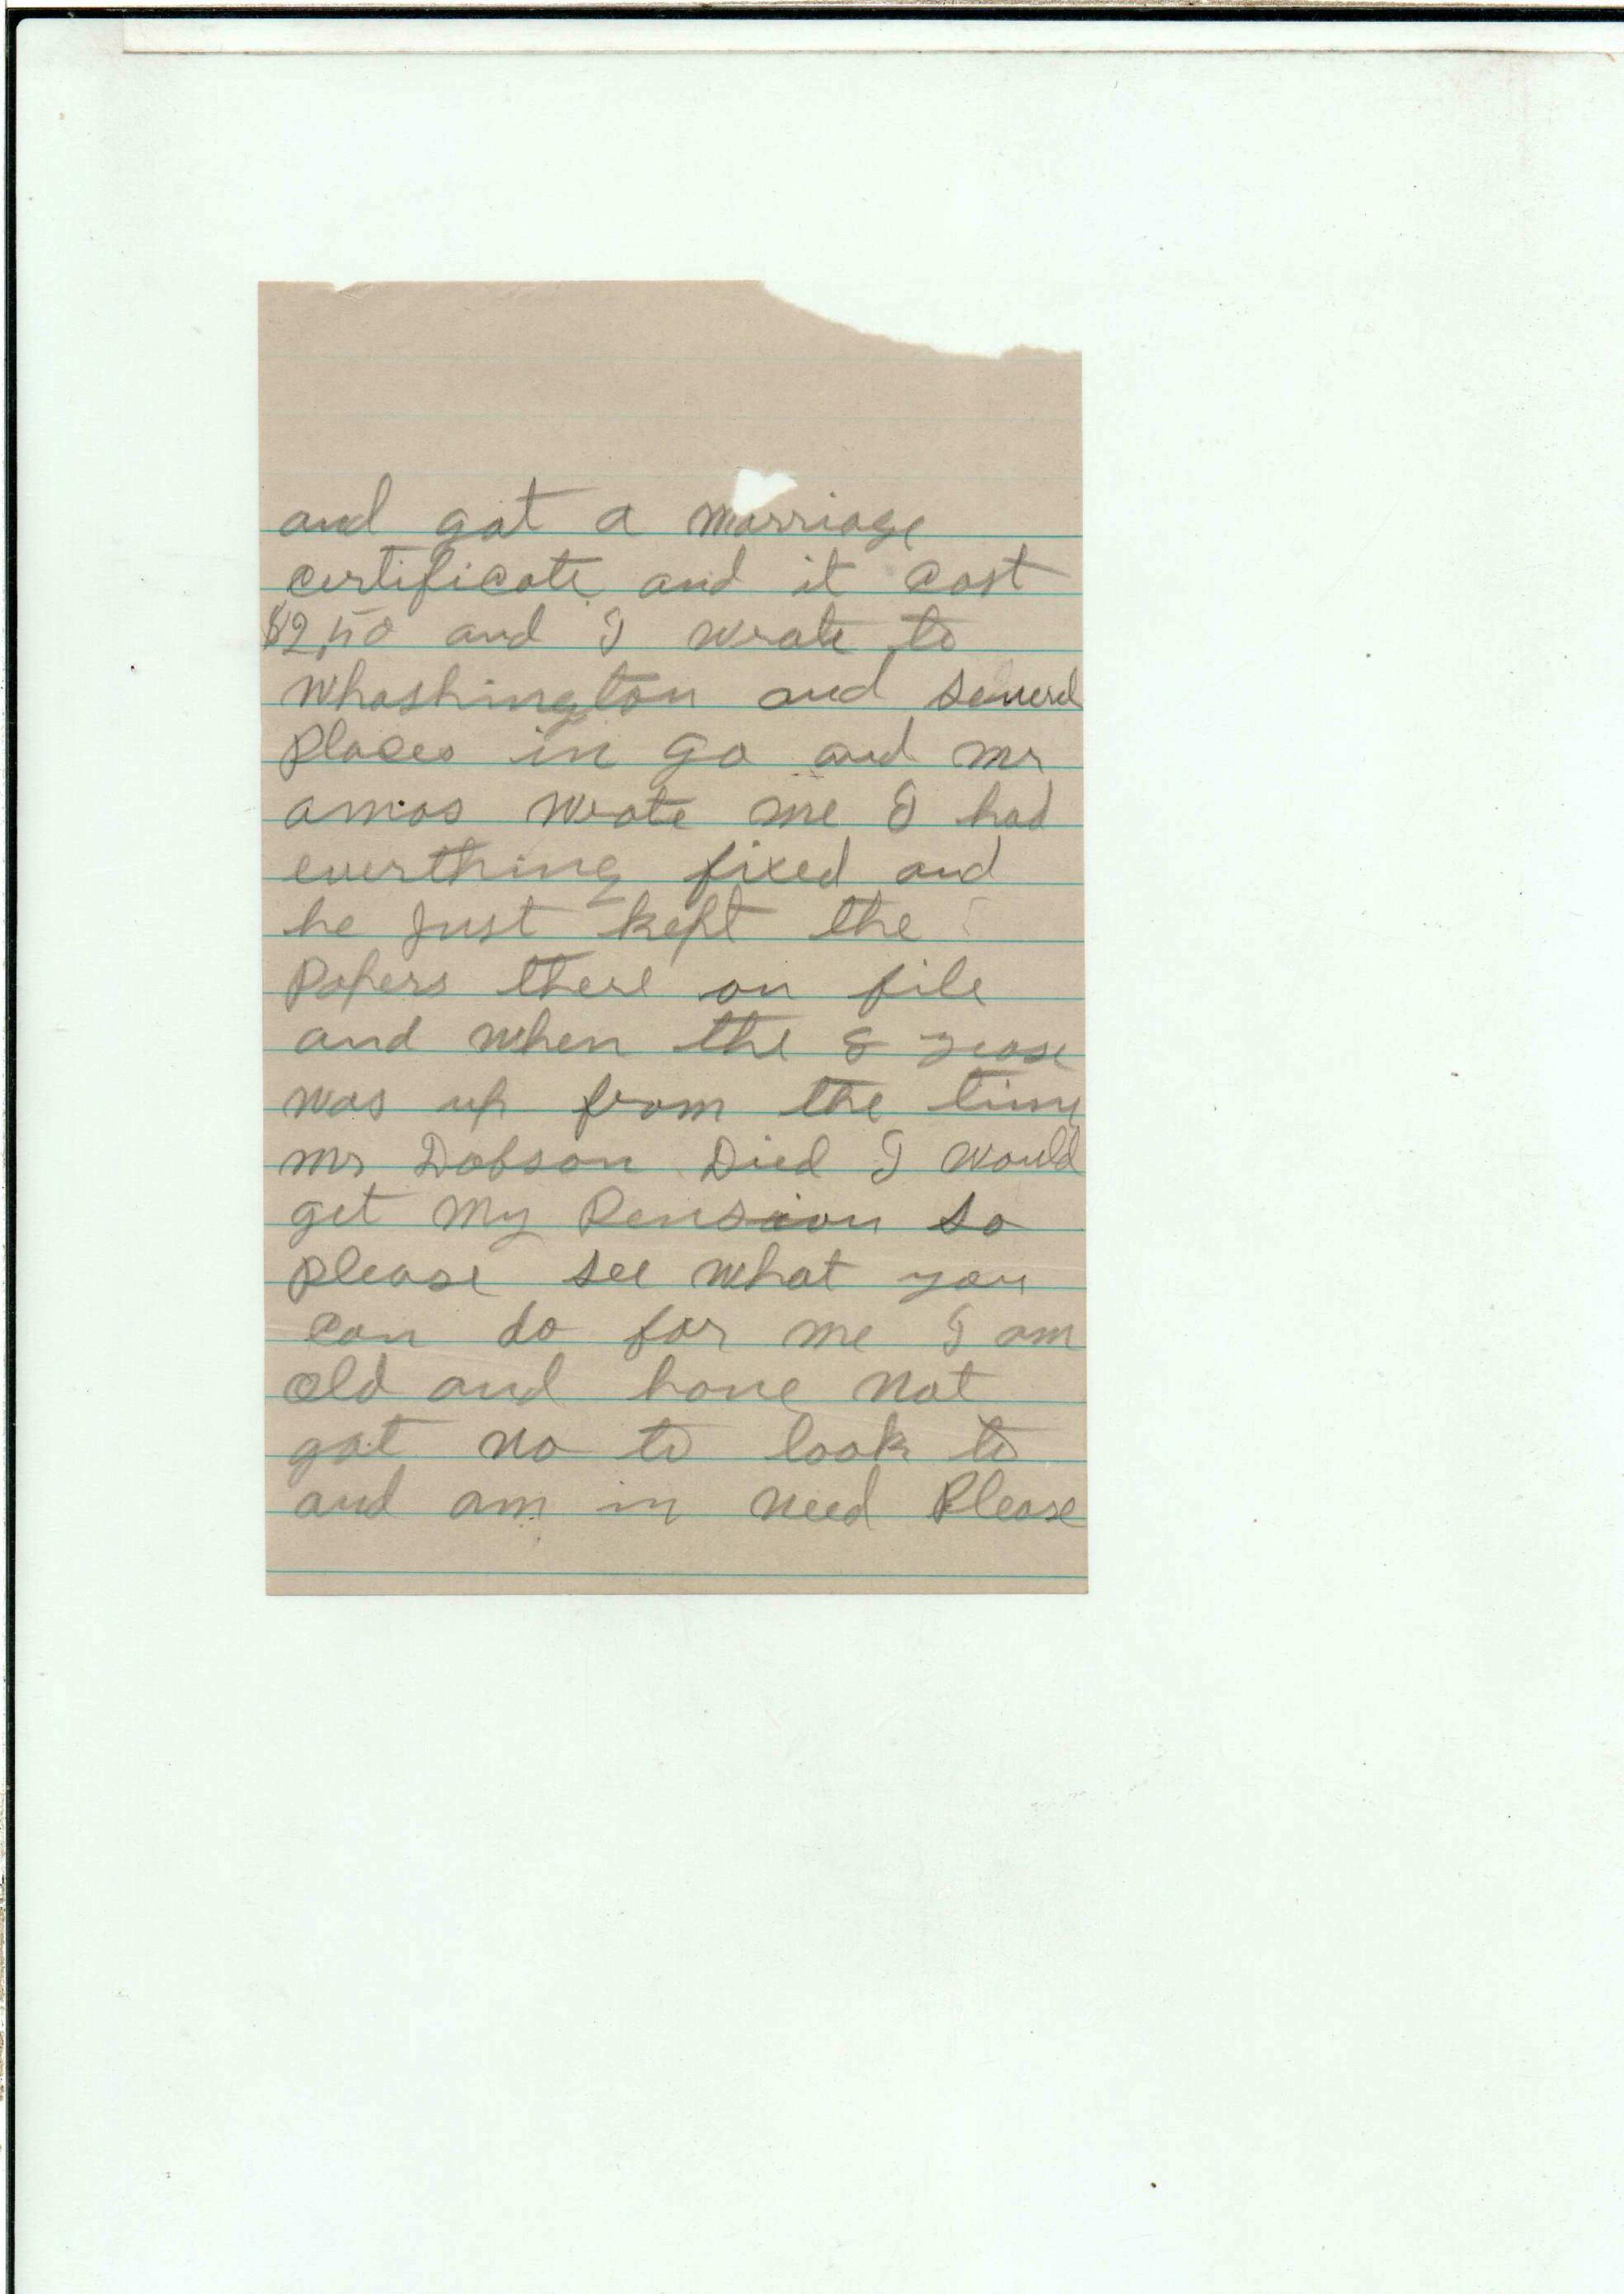 and got a marriage
certificate and it cost
$2,50 and I wrote to
Whashington and several
places in ga and mr
amos wrote me I had
everthing fixed and
he just kept the
papers there on file
and when the 8 years
was up from the time
mr Dobson Died I would
get my Pension so
please see what you
can do for me I am
old and have not
got no to look to
and am in need Please